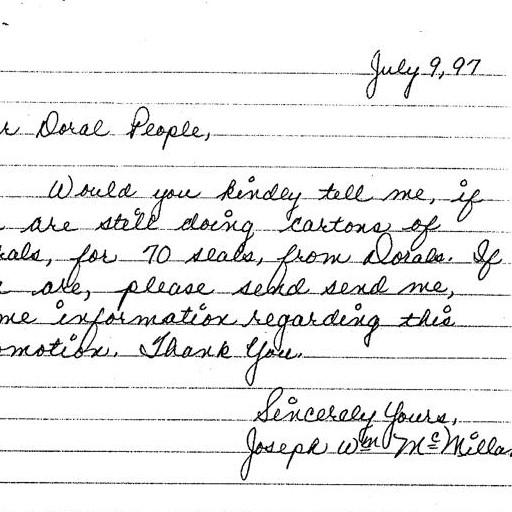 July 9, 97
r Doral People,
Would you kindly tell me, if
are still doing cartons of
rals, for 70 seals, from Dorals. If
are, please send send me,
me information regarding this
omotion. Thank You.
Sincerely Yours,
Joseph Wm McMilla